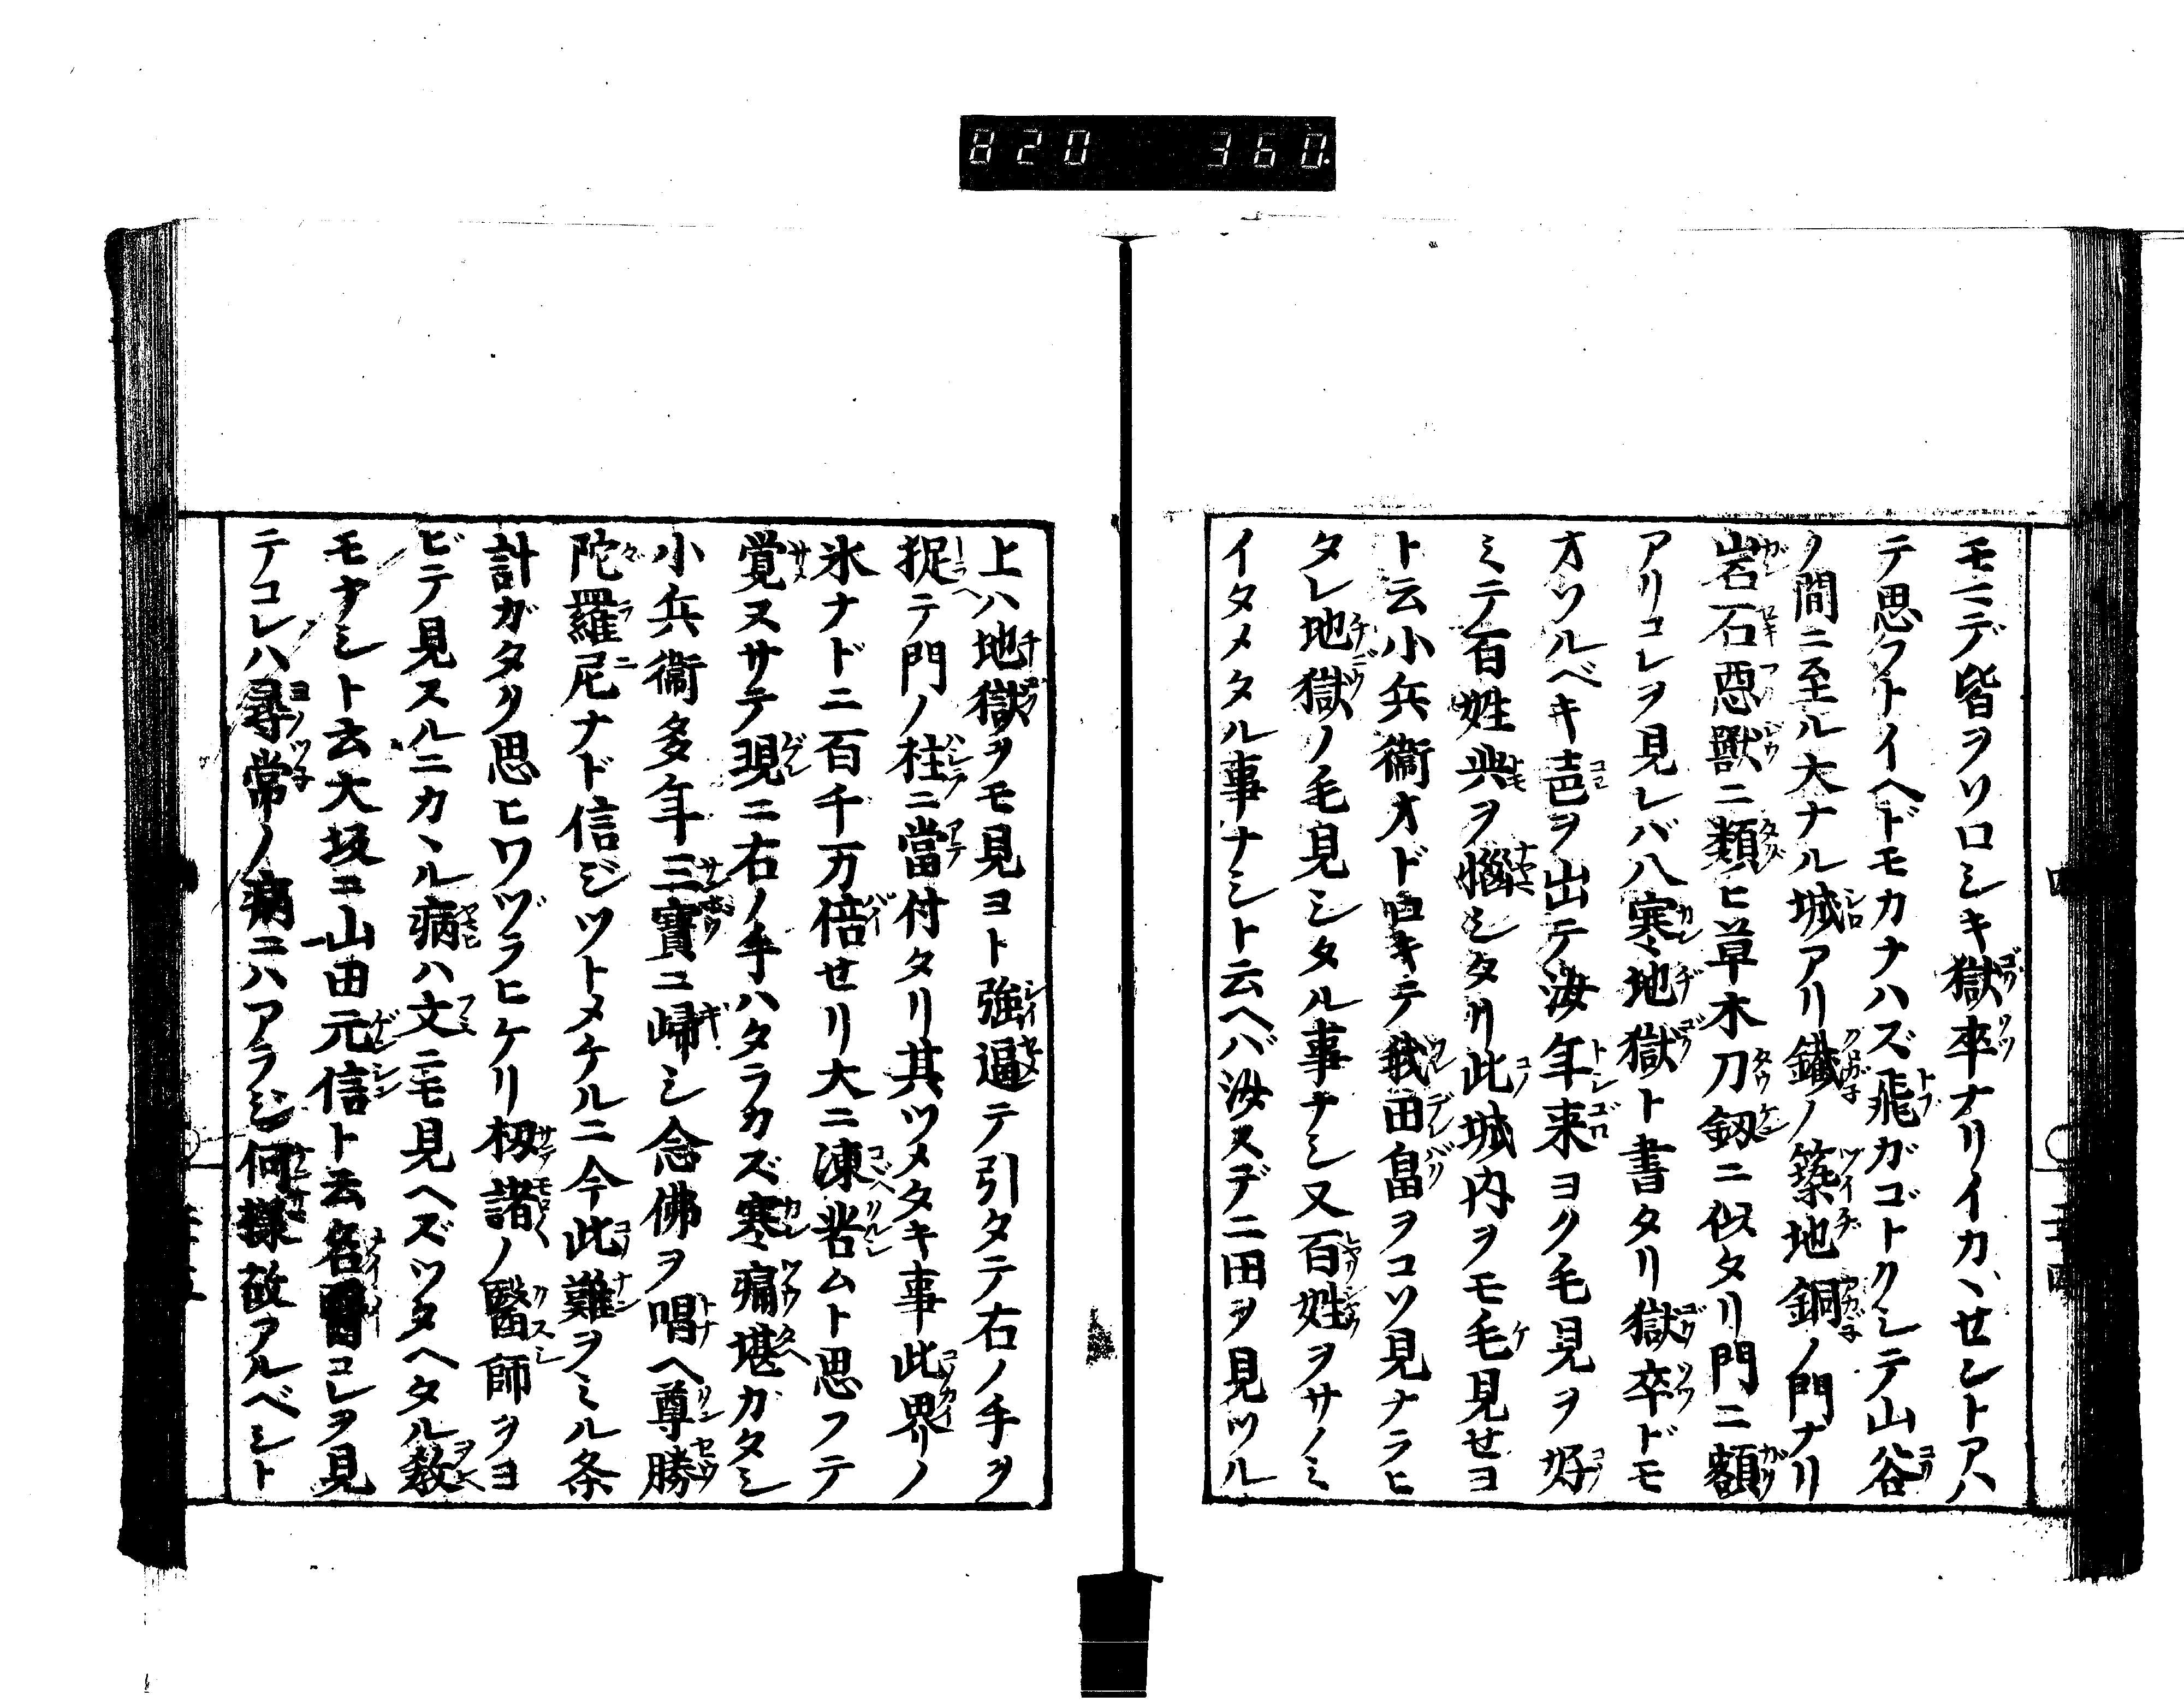 820 360
モミデ皆ヲソロシキ獄卒ナリイカヽセントアハ
テ思フトイヘドモカナハズ飛ガゴトクシテ山谷
ノ間ニ至ル大ナル城アリ鐵ノ築地銅ノ門ナリ
岩石惡獸ニ類ヒ草木刀釼ニ似タリ門ニ額
アリコレヲ見レバ八寒地獄ト書タリ獄卒ドモ
オソルベキ㐂ヲ出テ汝年来ヨク毛見ヲ好
ミテ百姓與ヲ惱シタリ此城内ヲモ毛見せヨ
ト云小兵衞オドロキテ我田畠ヲコソ見ナラヒ
タレ地獄ノ毛見シタル事ナシ又百姓ヲサノミ
イタメタル事ナシト云ヘバ汝スヂニ田ヲ見ツル
上ハ地獄ヲモ見ヨト強逼テ引タテ右ノ手ヲ
捉テ門ノ柱ニ當付タリ其ツメタキ事此界ノ
氷ナドニ百千万倍せリ大ニ凍苦ムト思フテ
覚ヌサテ現ニ右ノ手ハタラカズ寒痛堪ガタシ
小兵衞多年三寳ニ歸シ念佛ヲ唱ヘ尊勝
陀羅尼ナド信ジツトメケルニ今此難ヲミル条
計ガタク思ヒワヅラヒケリ扨諸ノ醫師ヲヨ
ビテ見スルニカヽル病ハ文ニモ見ヘズツタヘタル教
モナシト云大坂ニ山田元信ト云名醫コレヲ見
テコレハ尋常ノ病ニハアラジ何樣故アルベシト